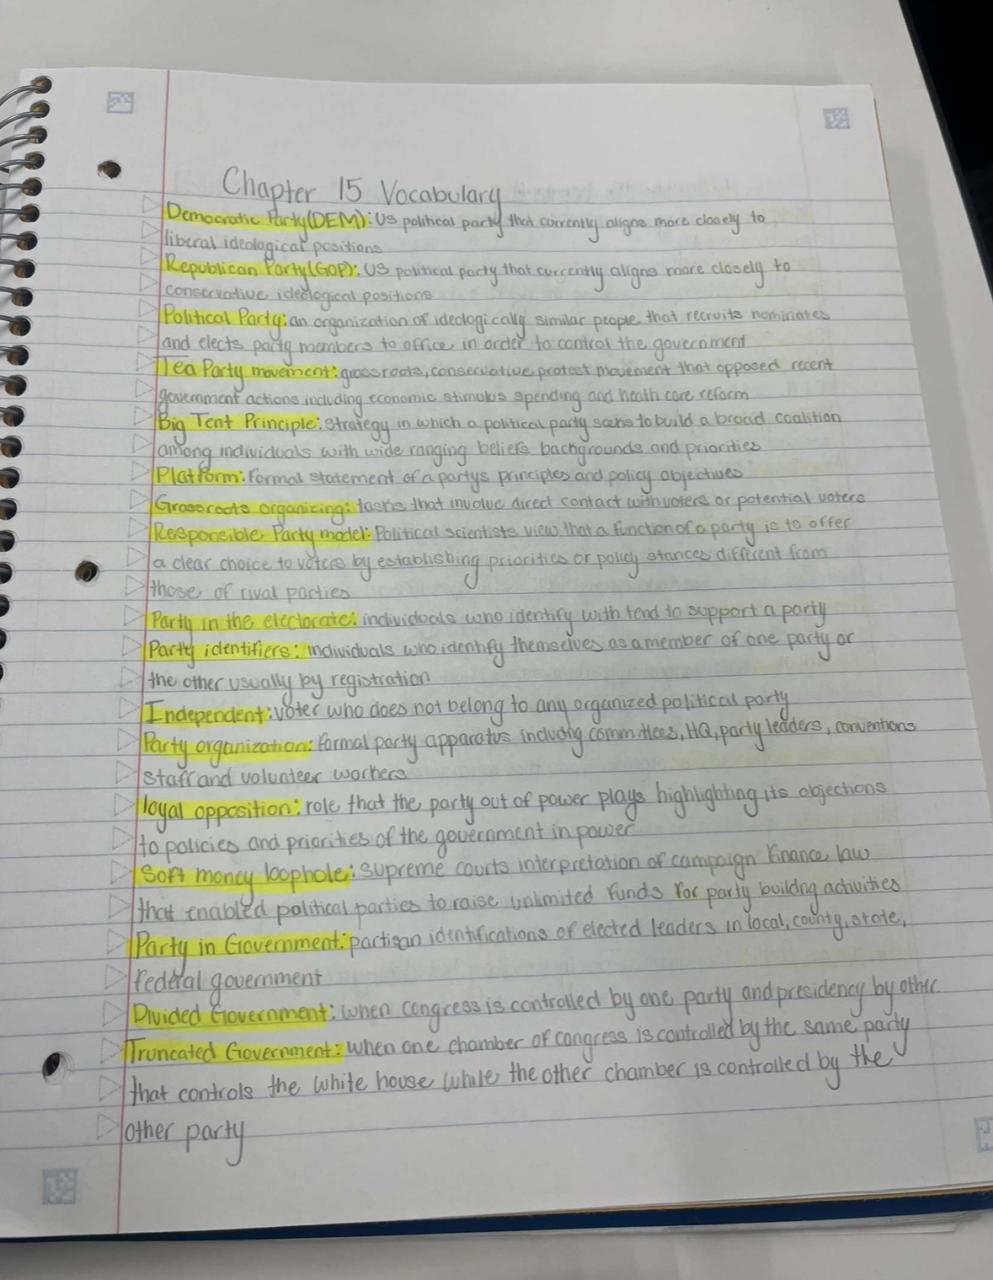 Chapter 15 Vocabulary
Democratic Party(DEM): US political party that currently aligns more closely to
liberal ideological positions
Republican Party(GOP): US political party that currently aligns more closely to
conservative ideological positions
Political Party: an organization of ideologically similar people that recruits nominates
and elects party members to office in order to control the government
Tea Party movement: grassroots, conservative protect movement that opposed recent
government actions including economic stimulus spending and health care reform
Big Tent Principle: strategy in which a political party seeks to build a broad coalition
among individuals with wide ranging beliefs backgrounds and priorities
Platform: Formal statement of a partys principles and policy objectives
Grassroots organizing: tasks that involve direct contact with voters or potential voters
Responsible Party model: Political scientists view that a function of a party is to offer
a clear choice to voters by establishing priorities or policy stances different from
those of rival parties
Party in the electorate: individuals who identify with tend to support a party
Party identifiers: individuals who identify themselves as a member of one party or
the other usually by registration
Independent: voter who does not belong to any organized political party
Party organization: formal party apparatus including committees, HQ, party leaders, conventions
staff and volunteer workers
loyal opposition: role that the party out of power plays highlighting its objections
to policies and priorities of the government in power
Soft money loophole: supreme courts interpretation of campaign finance law
that enabled political parties to raise unlimited funds for party building activities
Party in Government: partisan identifications of elected leaders in local, county, state,
federal government
Divided Government: when congress is controlled by one party and presidency by other
Truncated Government: when one chamber of congress is controlled by the same party
that controls the white house while the other chamber is controlled by the
other party